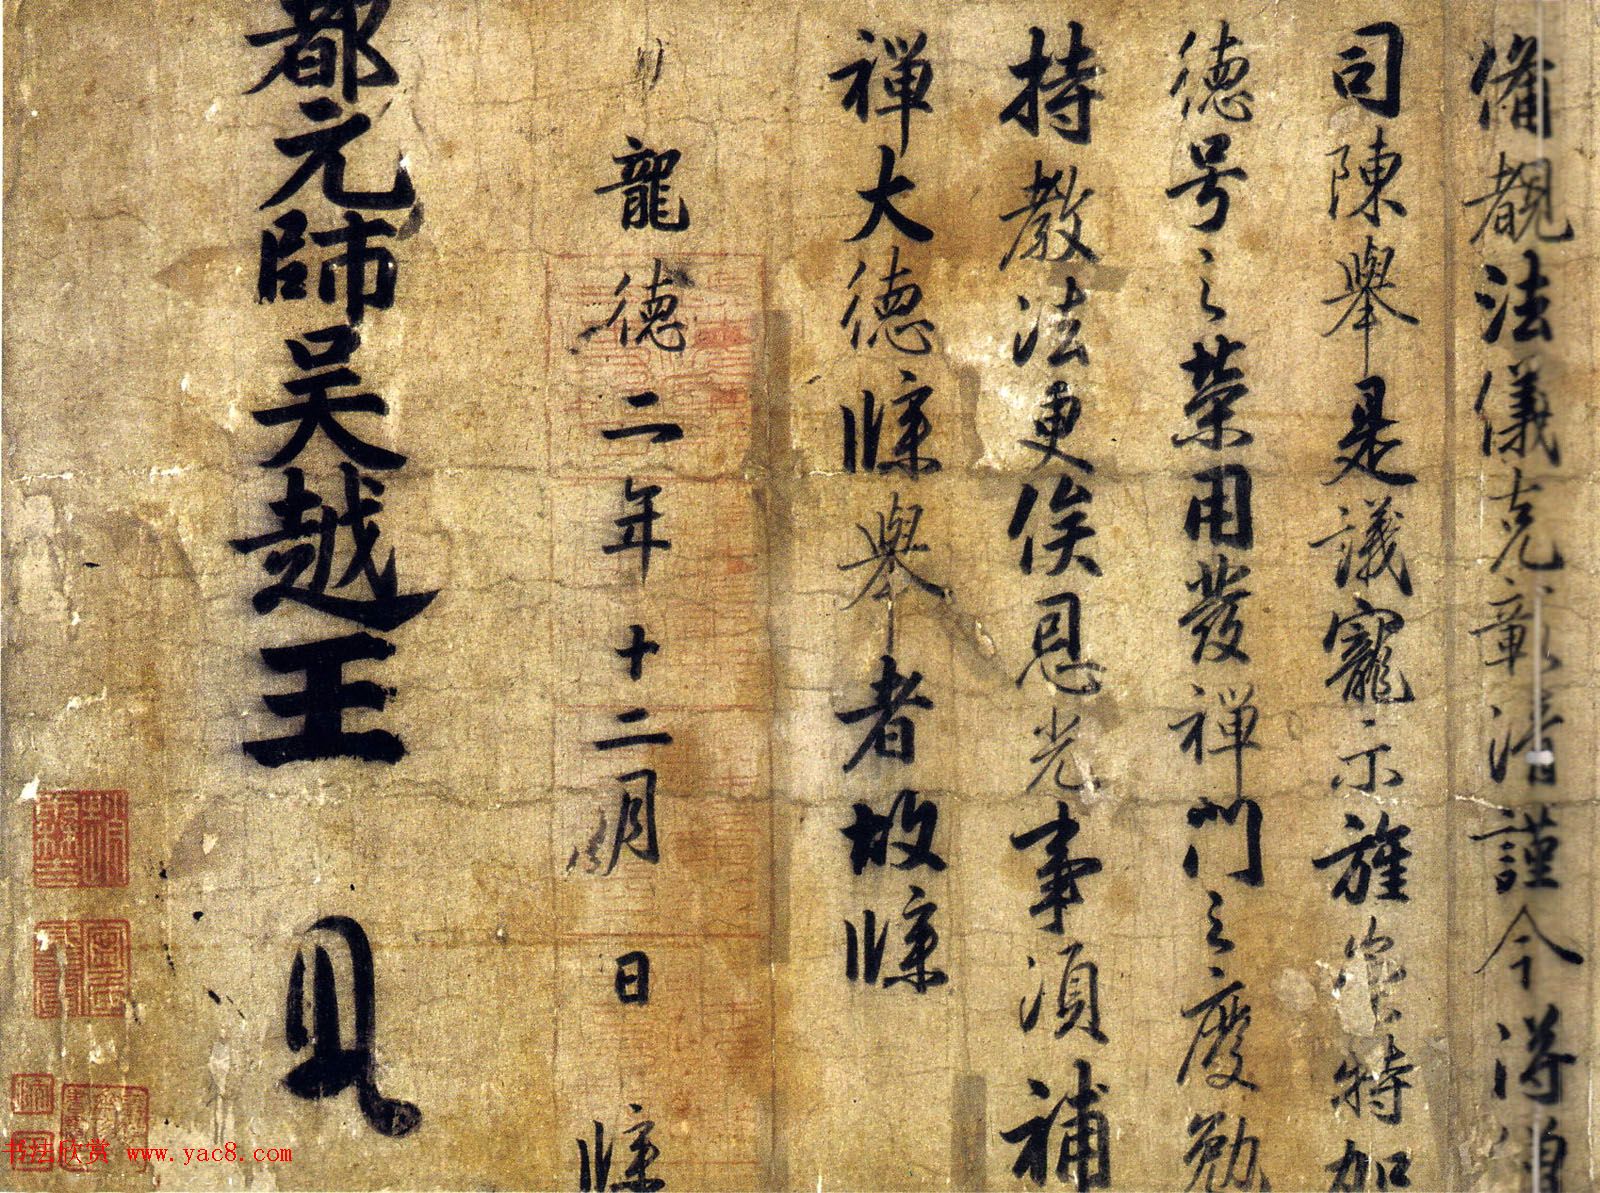 備觀法儀克彰清謹今得僧
司陳舉是議寵示旌崇特加
德号之榮用發禪門之慶勉
持教法更俟恩光事須補
禅大德牒舉者故牒
龍德二年十二月日牒
都元帥吳越王
书法欣赏 www.yac8.com